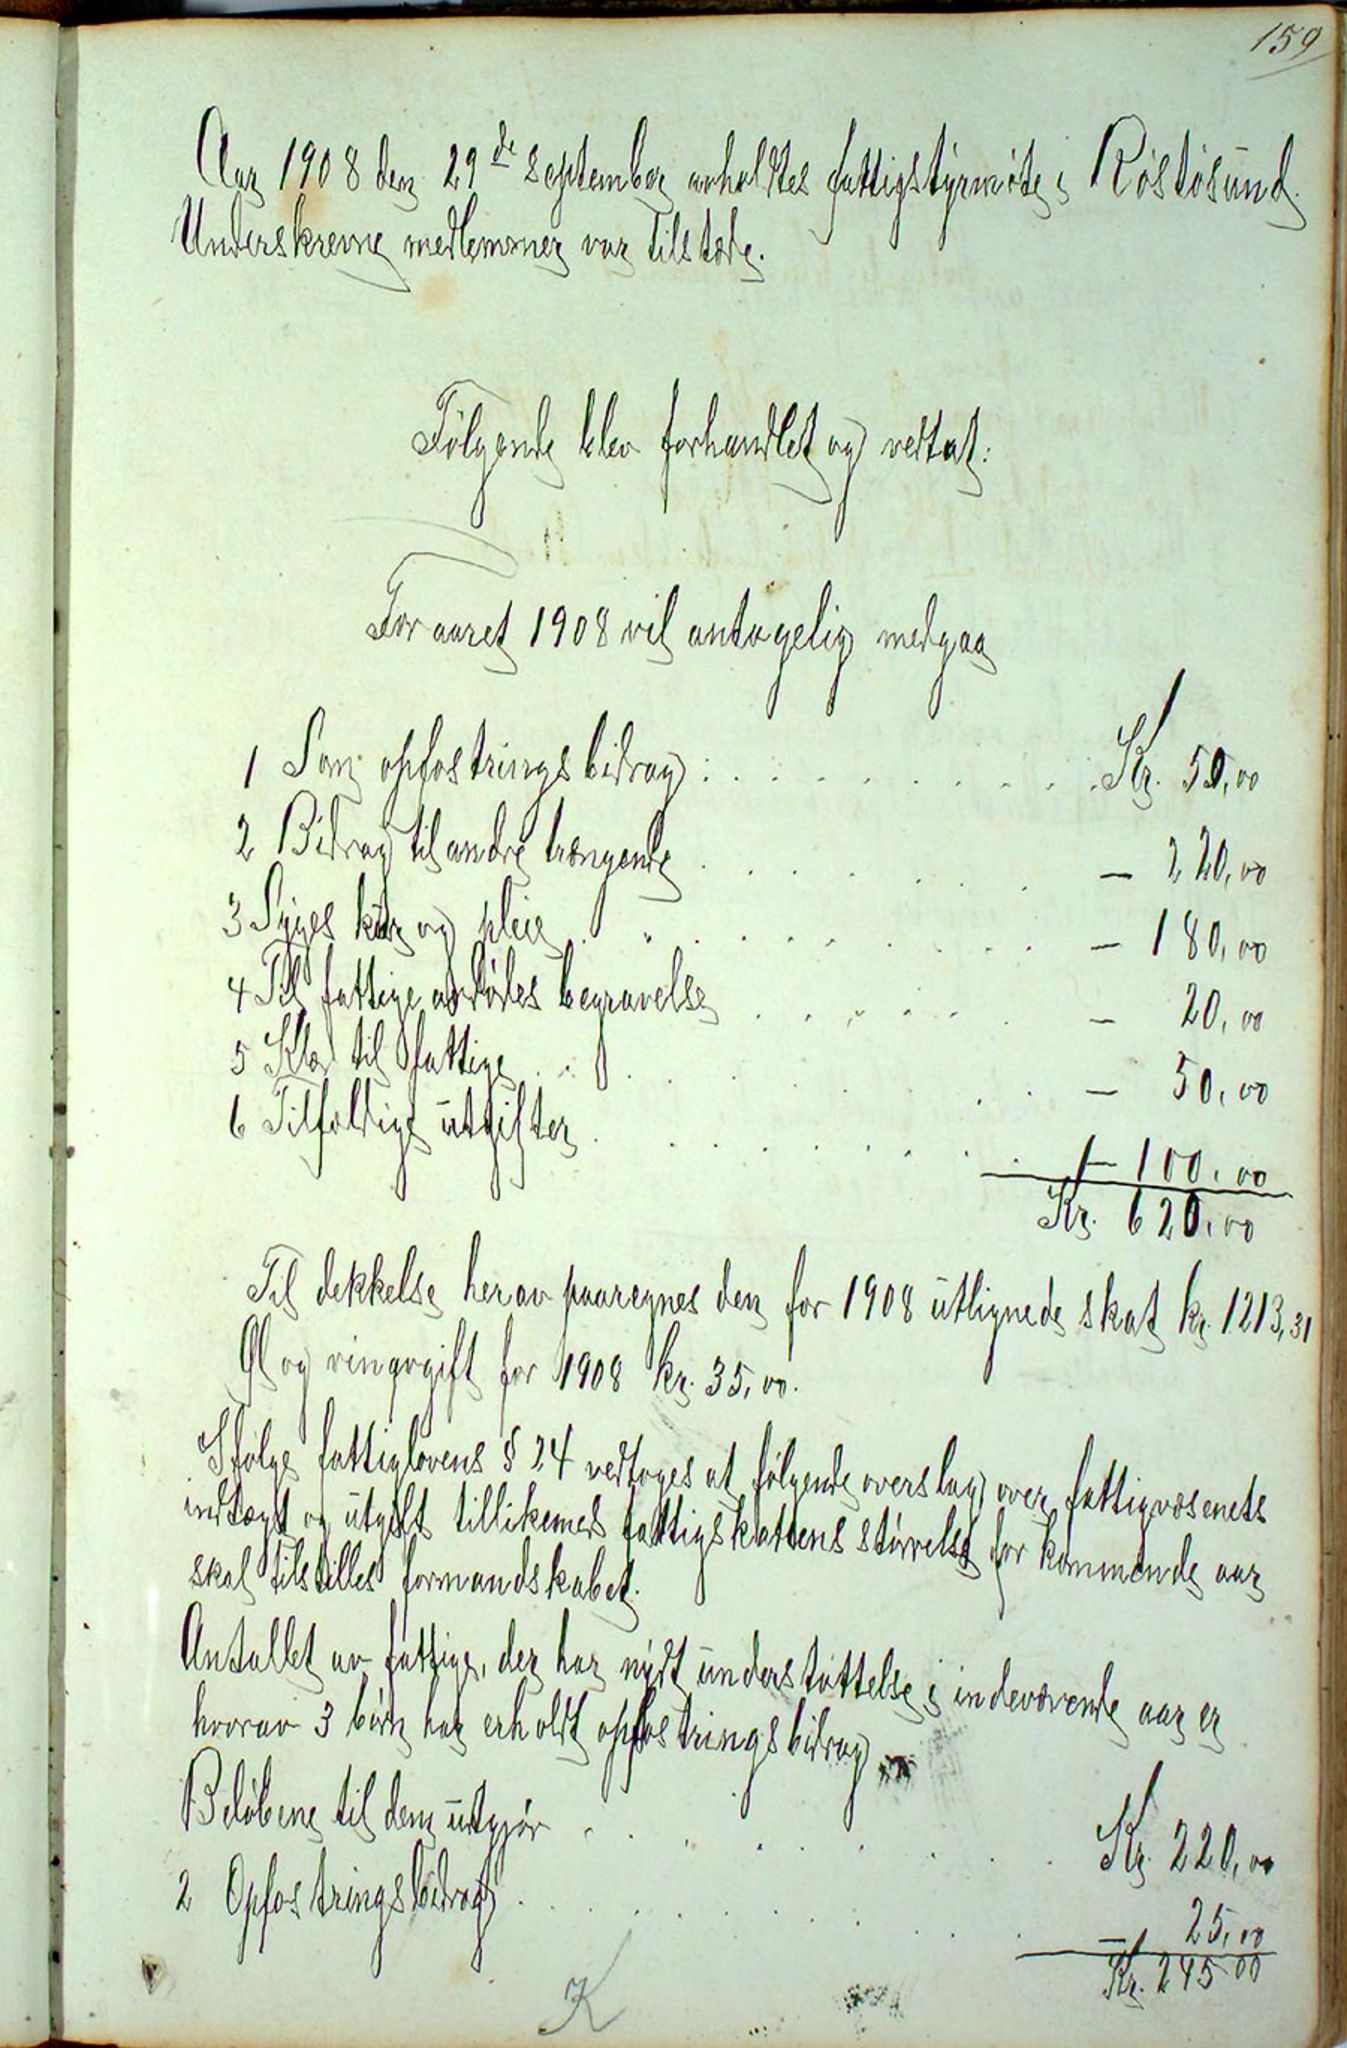 159
Aar 1908 den 29de september avholdtes fattigstyrmøte i Røstøsund.
Underskrevne medlemmer var tilstede.
Følgende blev forhandlet og vedtat:
For aaret 1908 vil antagelig medgaa
1 Som opfostringsbidrag . . . . . . . . . . Kr. 50,00
2 Bidrag til andre trængende . . . . . . . — 220,00
3 Syges kur og pleie . . . . . . . . . . — 180,00
4 Til fattige avdødes begravelse . . . . . . . — 20,00
5 Klær til fattige . . . . . . . . — 50,00
6 Tilfældige utgifter . . . . . . . . — 100,00
Kr. 620,00
Til dekkelse herav paaregnes den for 1908 utlignede skat kr. 1213,31
Øl og vinavgift for 1908 kr. 35,00.
Ifølge fattiglovens § 24 vedtoges at følgende overslag over fattigvæsenets
indtægt og utgift tillikemed fattigskattens størrelse for kommende aar
skal tilstilles formandskabet.
Antallet av fattige, der har nydt understøttelse i indeværende aar er
hvorav 3 børn har erholdt opfostringsbidrag
Beløbene til dem utgjør . . . . . . . . Kr. 220,00
2 Opfostringsbidrag . . . . . . . . — 25,00
Kr. 245 00
K